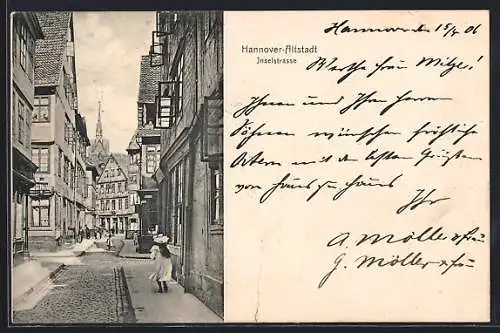 Hannover-Altstadt
Jnselstrasse
Hannover 15/4 06
Werthe Frau Mitze!
Ihnen und Ihren Herren
Söhnen wünschen fröhliche
Ostern mit den besten Grüßen
von Haus zu Haus
Ihre
A. Möller u. Frau
G. Möller u. Frau